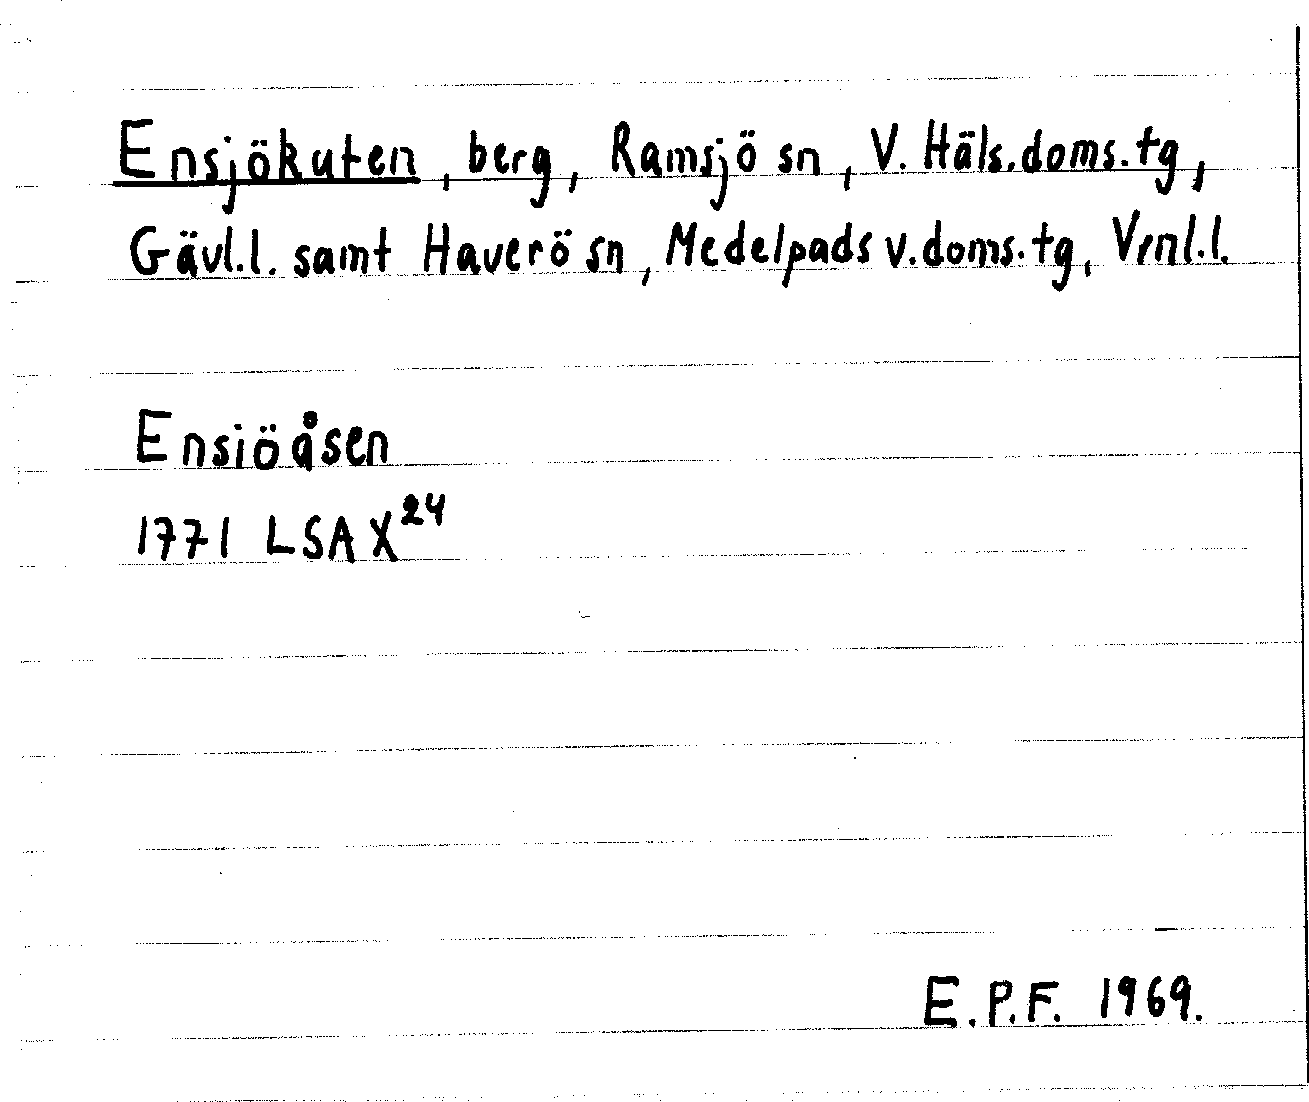 Ensjökuten, berg, Ramsjö sn, V. Häls.doms.tg,
Gävl.l. samt Haverö sn, Medelpads v.doms.tg, Vrnl.l.
Ensiöåsen
1771 LSA X²⁴
E.P.F. 1969.